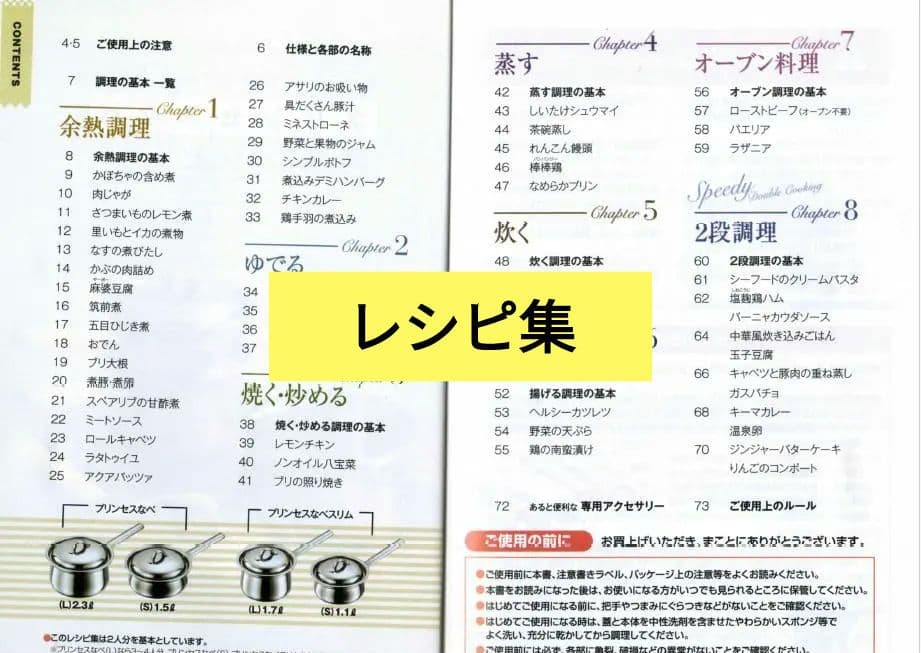 CONTENTS
4・5 ご使用上の注意
7 調理の基本 一覧
Chapter 1
余熱調理
8 余熱調理の基本
9 かぼちゃの含め煮
10 肉じゃが
11 さつまいものレモン煮
12 里いもとイカの煮物
13 なすの煮びたし
14 かぶの肉詰め
15 麻婆豆腐
16 筑前煮
17 五目ひじき煮
18 おでん
19 ブリ大根
20 煮豚・煮卵
21 スペアリブの甘酢煮
22 ミートソース
23 ロールキャベツ
24 ラタトゥイユ
25 アクアパッツァ
6 仕様と各部の名称
26 アサリのお吸い物
27 具だくさん豚汁
28 ミネストローネ
29 野菜と果物のジャム
30 シンプルポトフ
31 煮込みデミハンバーグ
32 チキンカレー
33 鶏手羽の煮込み
Chapter 2
ゆでる
34
35
36
37
焼く・炒める
38 焼く・炒める調理の基本
39 レモンチキン
40 ノンオイル八宝菜
41 ブリの照り焼き
レシピ集
プリンセスなべ
プリンセスなべスリム
(L)2.3ℓ
(S)1.5ℓ
(L)1.7ℓ
(S)1.1ℓ
●このレシピ集は2人分を基本としています。
Chapter 4
蒸す
42 蒸す調理の基本
43 しいたけシュウマイ
44 茶碗蒸し
45 れんこん饅頭
46 棒棒鶏
47 なめらかプリン
Chapter 5
炊く
48 炊く調理の基本
52 揚げる調理の基本
53 ヘルシーカツレツ
54 野菜の天ぷら
55 鶏の南蛮漬け
72 あると便利な 専用アクセサリー
Chapter 7
オーブン料理
56 オーブン調理の基本
57 ローストビーフ(オーブン不要)
58 パエリア
59 ラザニア
Speedy Double Cooking
Chapter 8
2段調理
60 2段調理の基本
61 シーフードのクリームパスタ
62 塩麹鶏ハム
バーニャカウダソース
64 中華風炊き込みごはん
玉子豆腐
66 キャベツと豚肉の重ね蒸し
ガスパチョ
68 キーマカレー
温泉卵
70 ジンジャーバターケーキ
りんごのコンポート
73 ご使用上のルール
ご使用の前に
お買上げいただき、まことにありがとうございます。
●ご使用前に本書、注意書きラベル、パッケージ上の注意等をよくお読みください。
●本書をお読みになった後は、お使いになる方がいつでも見られるところに保管してください。
●はじめてご使用になる前に、把手やつまみにぐらつきなどがないことをご確認ください。
●はじめてご使用になる時は、蓋と本体を中性洗剤を含ませたやわらかいスポンジ等で
よく洗い、充分に乾かしてから調理してください。
●ご使用前には必ず、各部に亀裂、破損などの異常がないことをご確認ください。